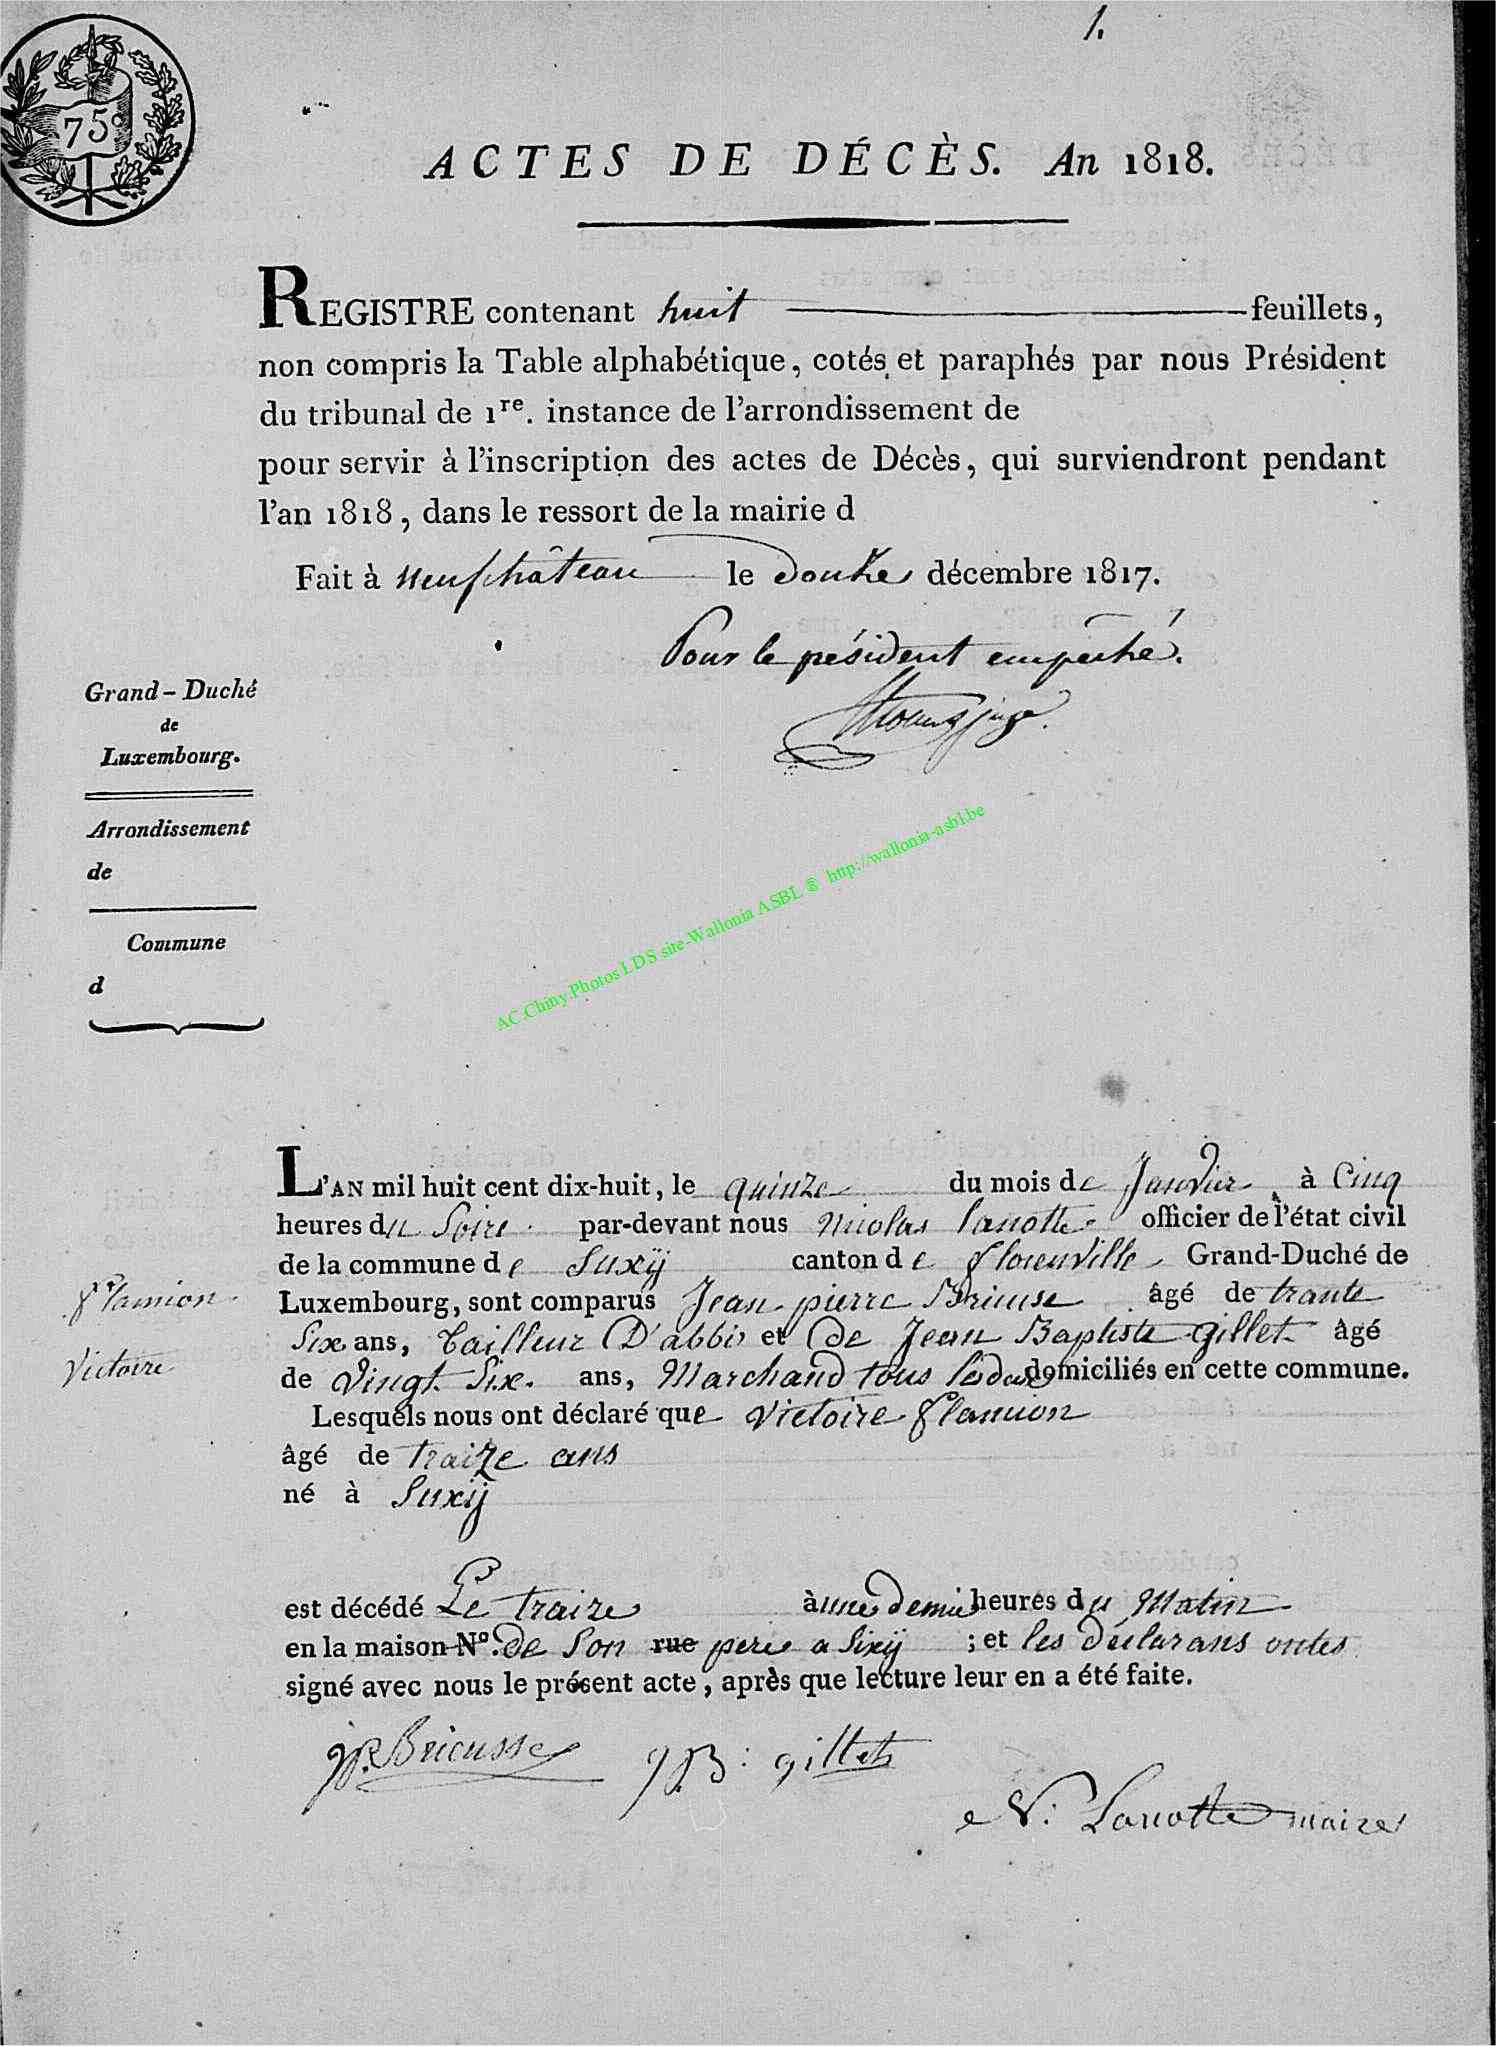 1.
75c
ACTES DE DÉCÈS. An 1818.
REGISTRE contenant huit feuillets,
non compris la Table alphabétique, cotés et paraphés par nous Président
du tribunal de 1re. instance de l'arrondissement de
pour servir à l'inscription des actes de Décès, qui surviendront pendant
l'an 1818, dans le ressort de la mairie d
Fait à neufchâteau le douze décembre 1817.
Pour le président empêché.
juge.
Grand-Duché
de
Luxembourg.
Arrondissement
de
Commune
d
AC.Chiny.Photos LDS site-Wallonia ASBL ® http://wallonia-asbl.be
L'AN mil huit cent dix-huit, le quinze du mois de Janvier à Cinq
heures du Soire par-devant nous Nicolas Lanotte officier de l'état civil
de la commune de Suxÿ canton de florenville Grand-Duché de
Luxembourg, sont comparus Jean pierre Bricusse âgé de trante
Six ans, tailleur D'abbi et de Jean Baptiste gillet âgé
de Vingt Six ans, Marchand tous les deux domiciliés en cette commune.
Lesquels nous ont déclaré que Victoire flamion
âgé de traize ans
né à Suxÿ
flamion
Victoire
est décédé Le traize à une demie heures du Matin
en la maison N°. de Son rue pere a Sixÿ ; et les déclarans ontes
signé avec nous le présent acte, après que lecture leur en a été faite.
JP. Bricusse JB: gillet
N. Lanotte maire